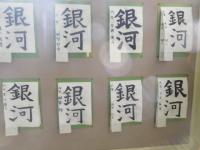 銀河
銀河
銀河
銀河
銀河
銀河
銀河
銀河